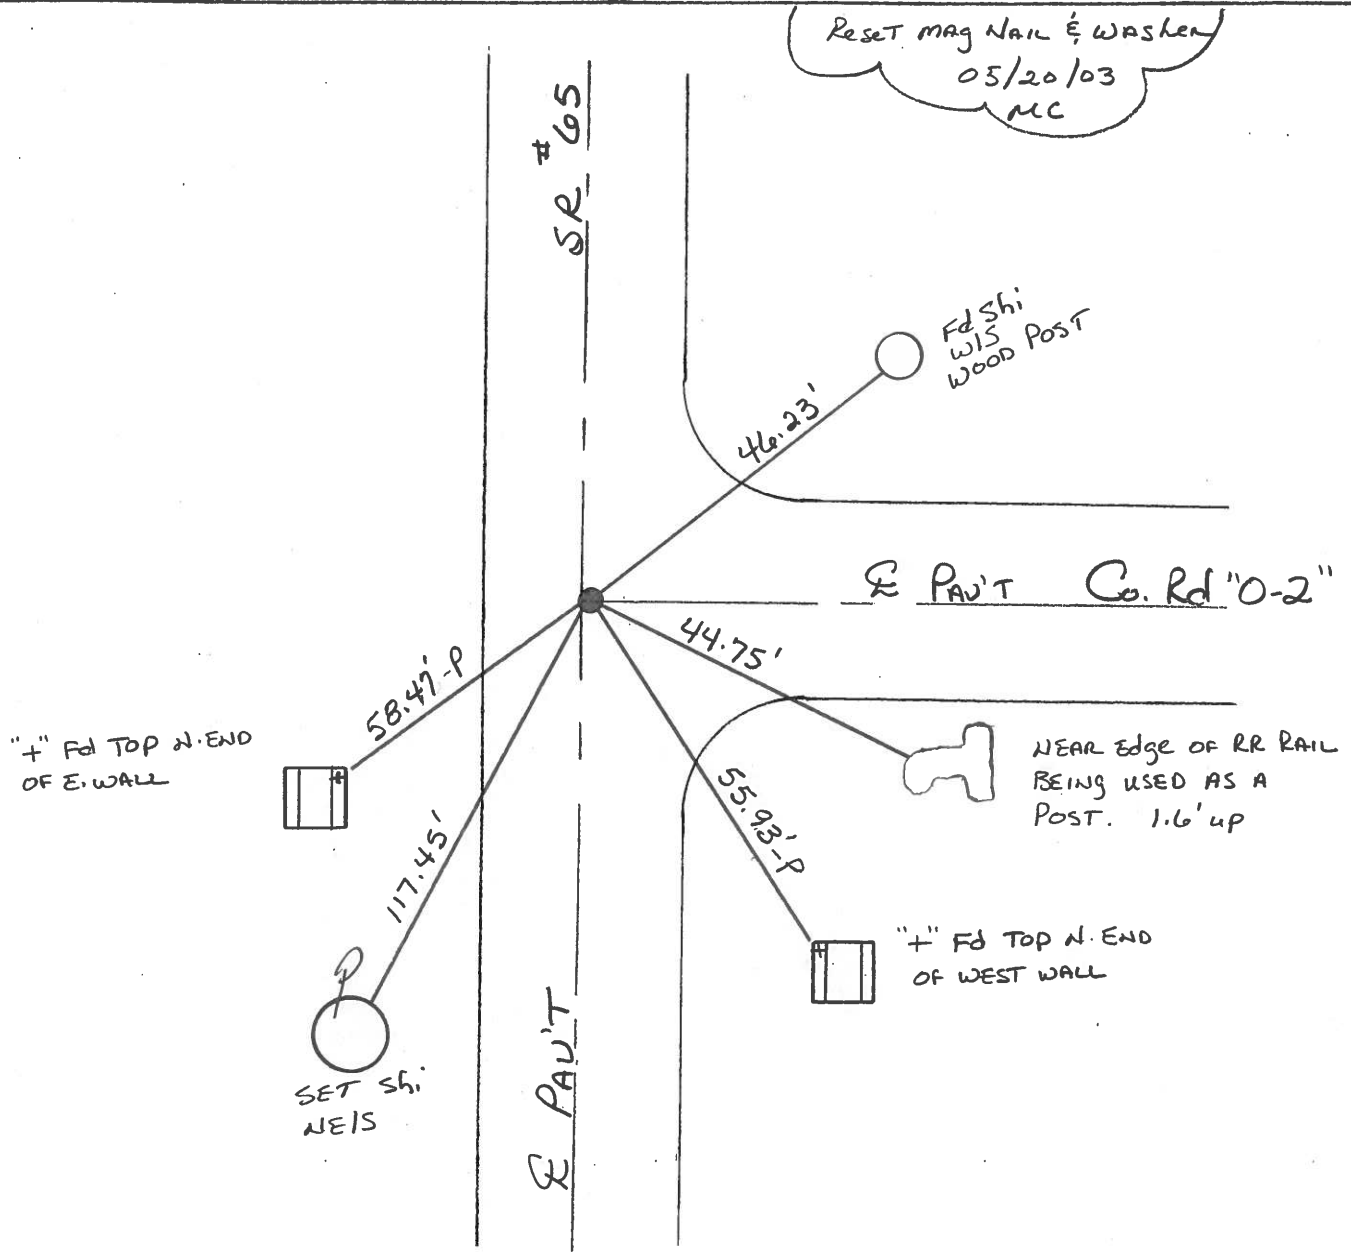 Reset MAg NAIL & WAsher
05/20/03
MC
SR #65
Fd Shi
W/S
WOOD POST
46.23'
℄ PAV'T Co. Rd "O-2"
44.75'
58.47'-P
"+" Fd TOP N. END
OF E. WALL
NEAR Edge OF RR RAIL
BEING USED AS A
POST. 1.6' up
55.93'-P
117.45'
"+" Fd TOP N. END
OF WEST WALL
P
SET Shi
NE/S
℄ PAV'T